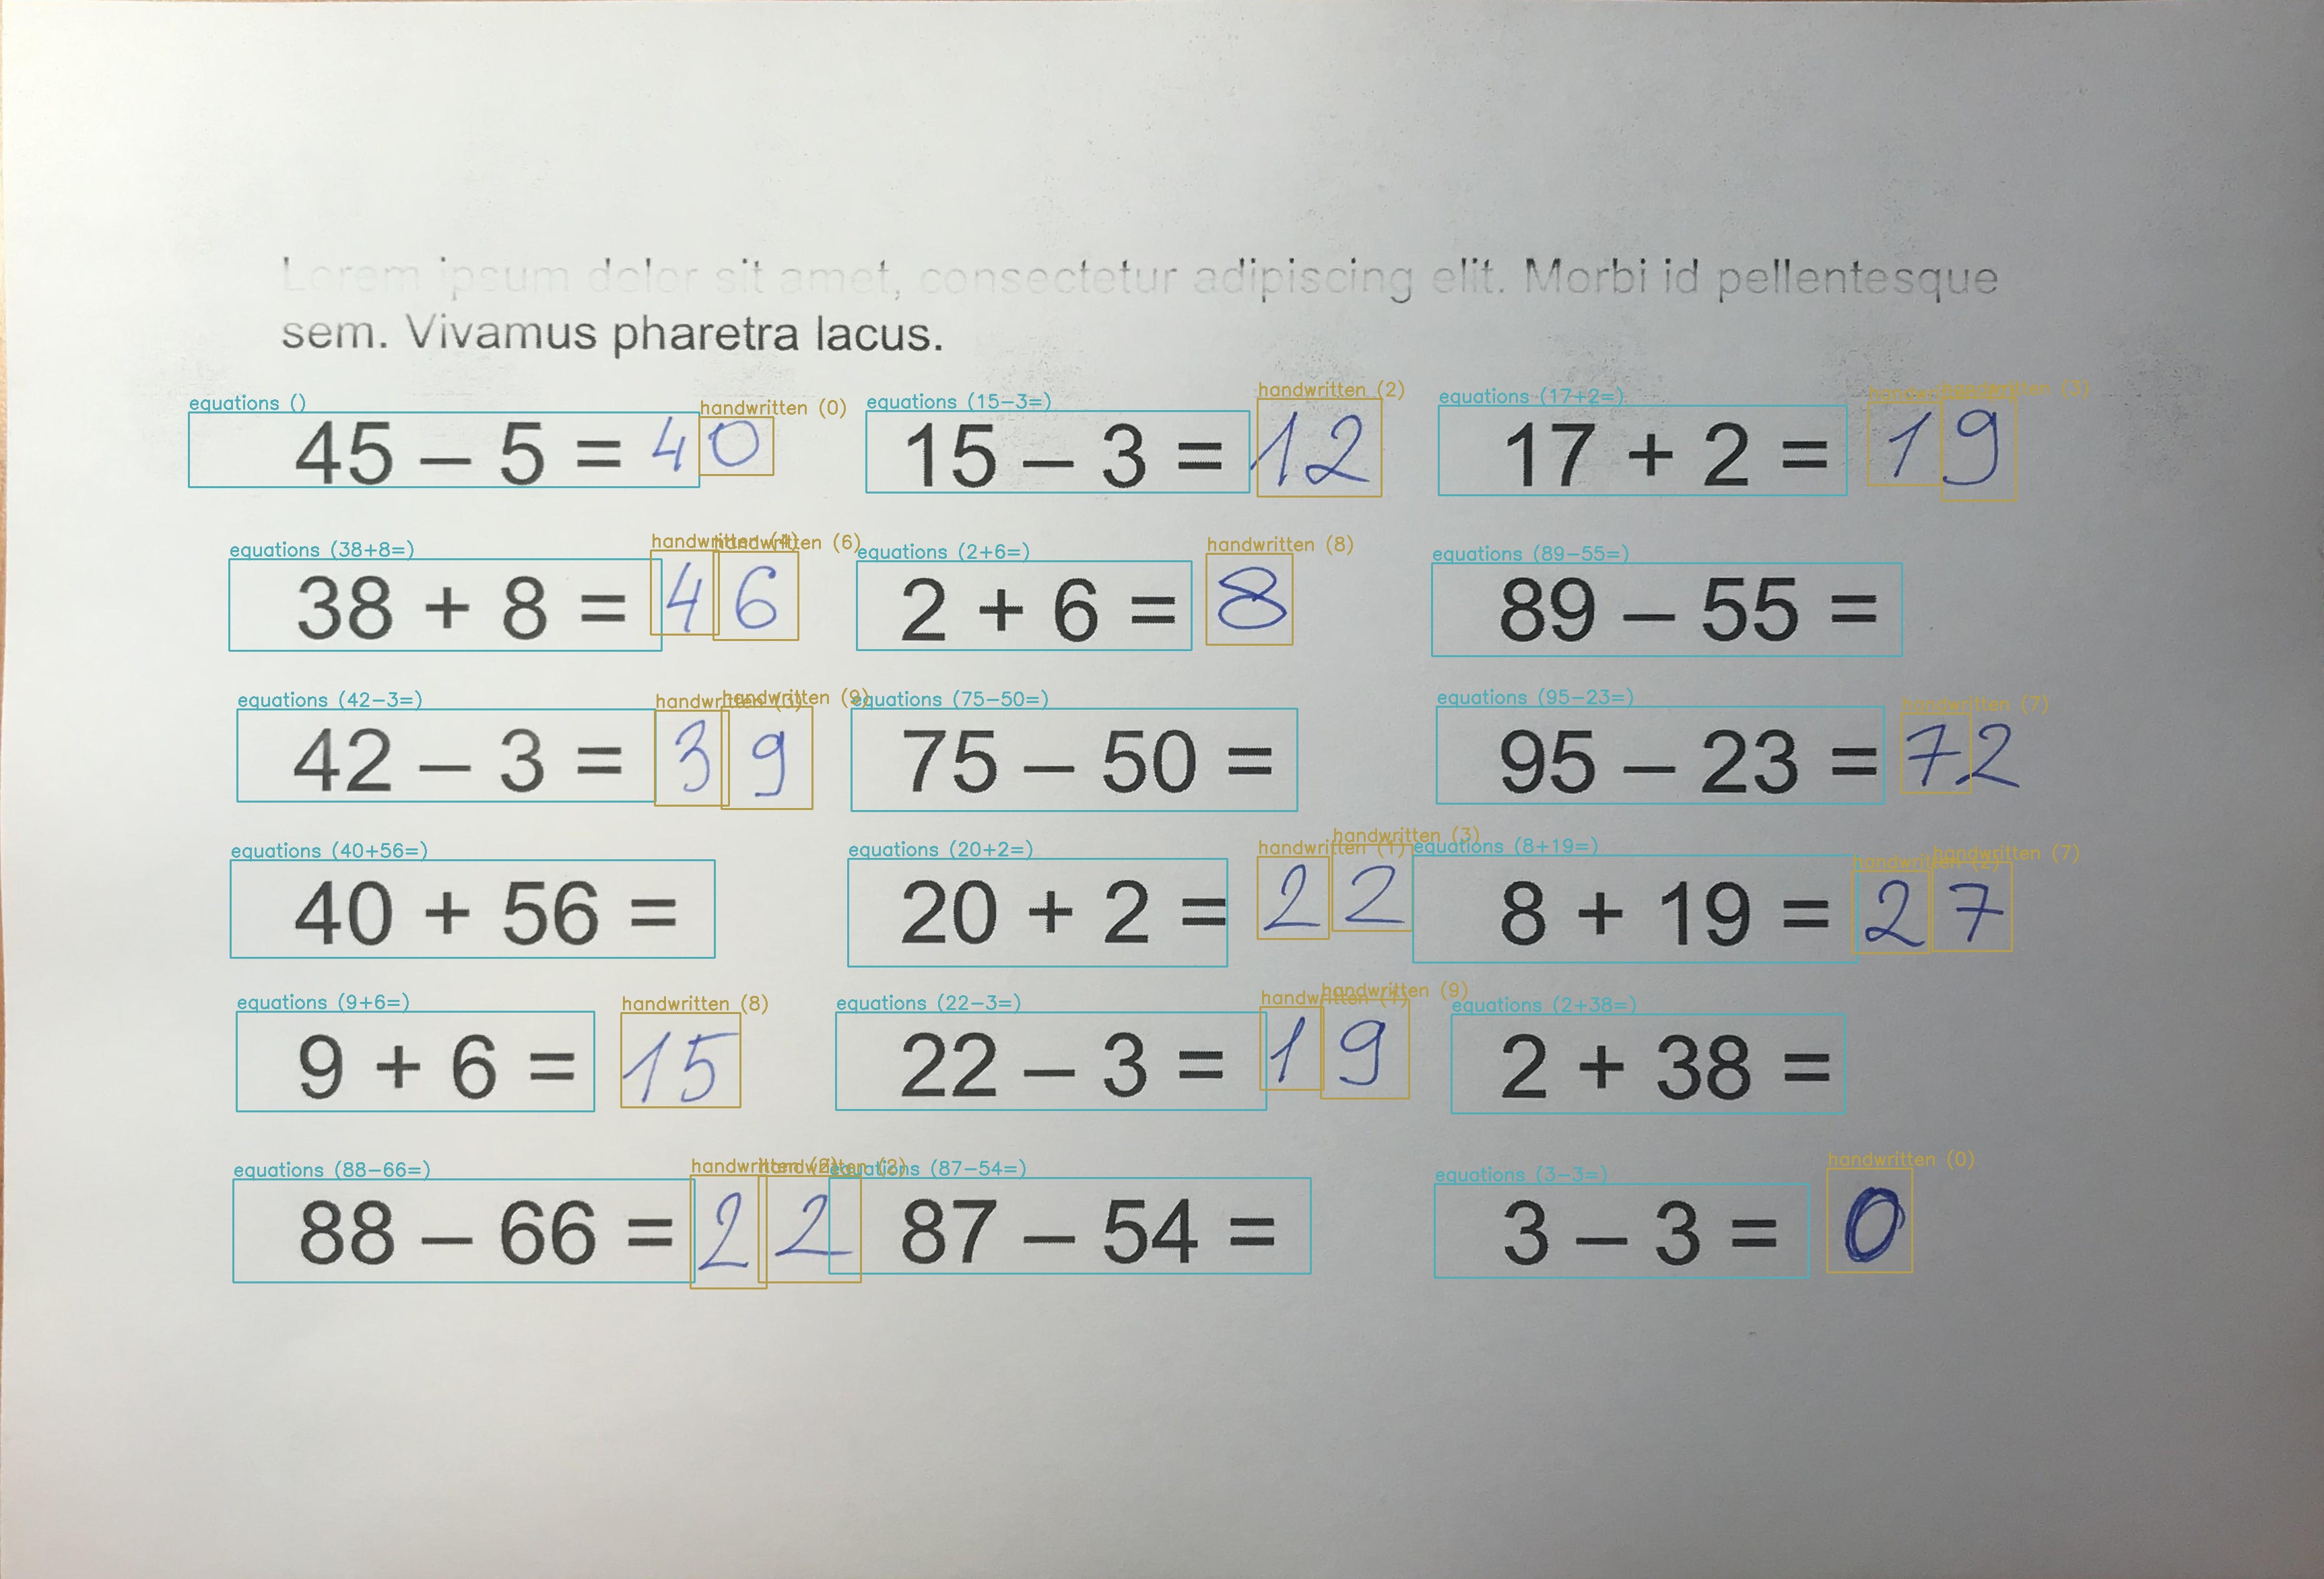 Lorem ipsum dolor sit amet, consectetur adipiscing elit. Morbi id pellentesque
sem. Vivamus pharetra lacus.
equations () handwritten (0) equations (15-3=) handwritten (2) equations (17+2=) handwritten (3)
45 – 5 = 40 15 – 3 = 12 17 + 2 = 19
equations (38+8=) handwritten (4) handwritten (6) equations (2+6=) handwritten (8) equations (89-55=)
38 + 8 = 46 2 + 6 = 8 89 – 55 =
equations (42-3=) handwritten (3) handwritten (9) equations (75-50=) equations (95-23=) handwritten (7)
42 – 3 = 39 75 – 50 = 95 – 23 = 72
equations (40+56=) equations (20+2=) handwritten (1) handwritten (3) equations (8+19=) handwritten (2) handwritten (7)
40 + 56 = 20 + 2 = 22 8 + 19 = 27
equations (9+6=) handwritten (8) equations (22-3=) handwritten (1) handwritten (9) equations (2+38=)
9 + 6 = 15 22 – 3 = 19 2 + 38 =
equations (88-66=) handwritten (2) handwritten (2) equations (87-54=) equations (3-3=) handwritten (0)
88 – 66 = 22 87 – 54 = 3 – 3 = 0